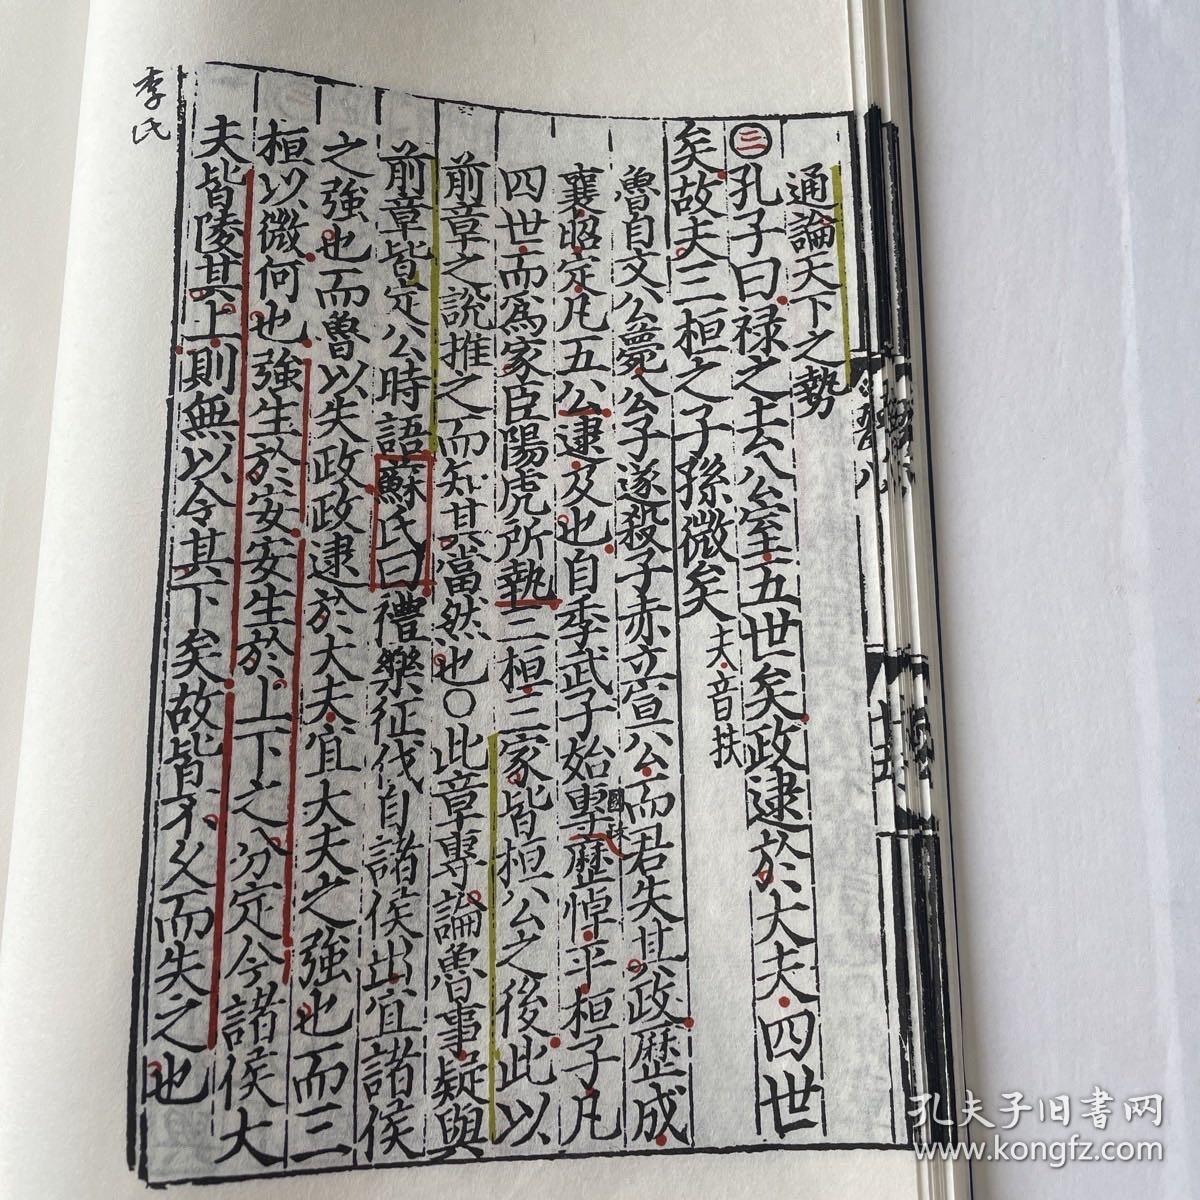 通論天下之勢
㊂孔子曰禄之去公室五世矣政逮於大夫四世
矣故夫三桓之子孫微矣夫音扶
魯自文公薨公子遂殺子赤立宣公而君失其政歴成
襄昭定凡五公逮及也自季武子始專國政歴悼平桓子凡
四世而爲家臣陽虎所執三桓三家皆桓公之後此以
前章之說推之而知其當然也○此章專論魯事疑與
前章皆定公時語蘇氏曰禮樂征伐自諸侯出宜諸侯
之強也而魯以失政政逮於大夫宜大夫之強也而三
桓以微何也強生於安安生於上下之分定今諸侯大
夫皆陵其上則無以令其下矣故皆不久而失之也
李氏
孔夫子旧書网
www.kongfz.com